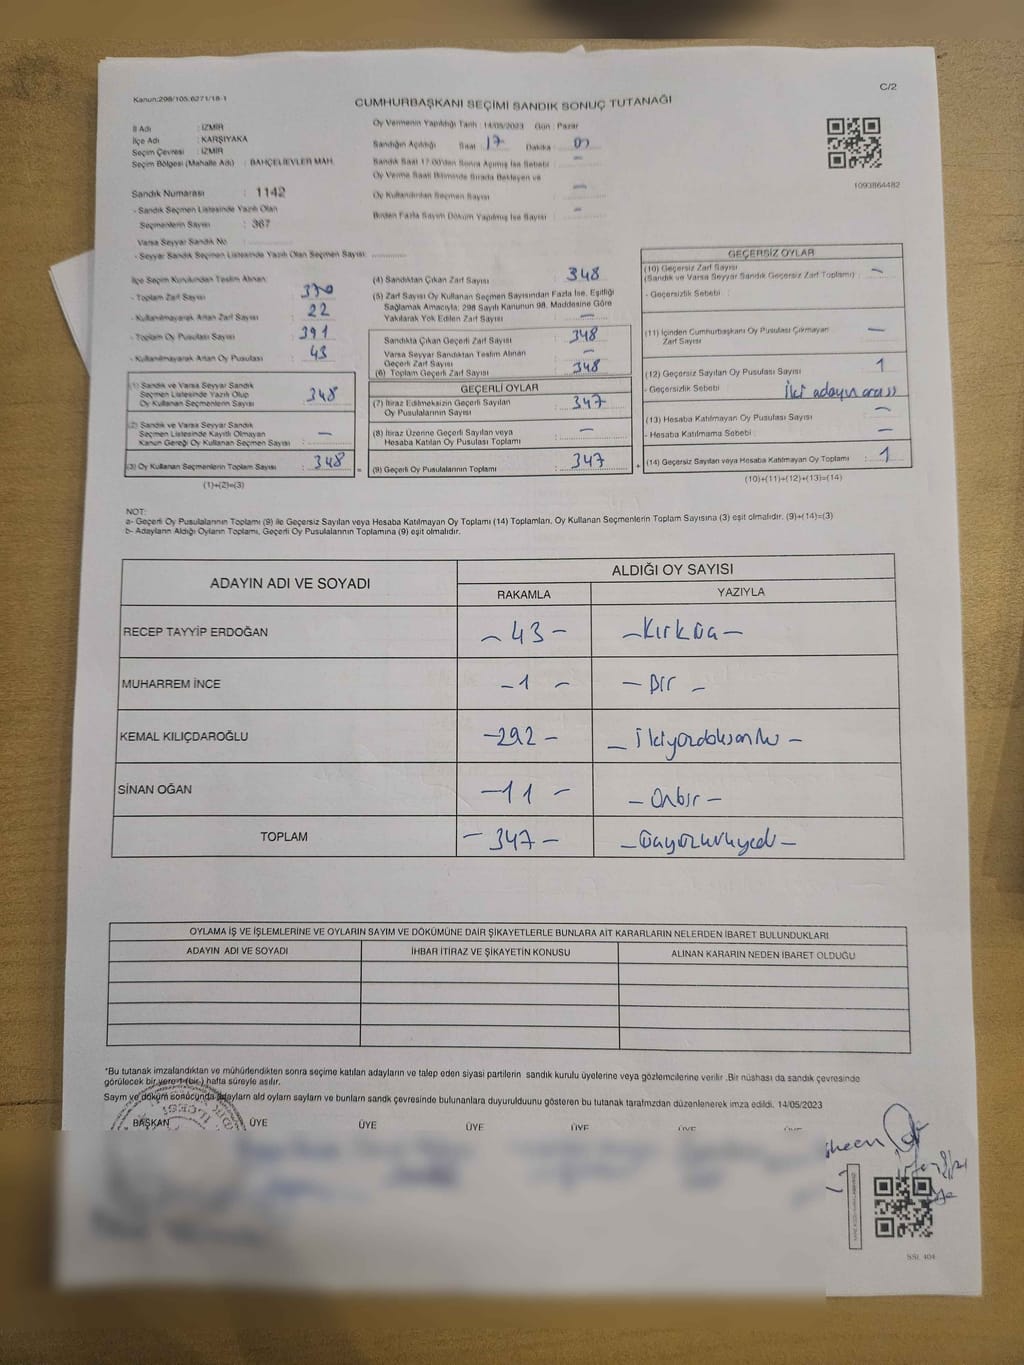 Kanun:298/105,6271/18-1
C/2
CUMHURBAŞKANI SEÇİMİ SANDIK SONUÇ TUTANAĞI
İl Adı : İZMİR
İlçe Adı : KARŞIYAKA
Seçim Çevresi : İZMİR
Seçim Bölgesi (Mahalle Adı) : BAHÇELİEVLER MAH.
Oy Vermenin Yapıldığı Tarih : 14/05/2023 Gün : Pazar
Sandığın Açıldığı Saat 17 Dakika 00
Sandık Saat 17:00'den Sonra Açılmış İse Sebebi : –
Oy Verme Saati Bitiminde Sırada Bekleyen ve
Oy Kullandırılan Seçmen Sayısı –
Birden Fazla Sayım Döküm Yapılmış İse Sayısı –
1093864482
Sandık Numarası : 1142
- Sandık Seçmen Listesinde Yazılı Olan
Seçmenlerin Sayısı : 367
Varsa Seyyar Sandık No :
- Seyyar Sandık Seçmen Listesinde Yazılı Olan Seçmen Sayısı:
İlçe Seçim Kurulundan Teslim Alınan:
- Toplam Zarf Sayısı 370
- Kullanılmayarak Artan Zarf Sayısı 22
- Toplam Oy Pusulası Sayısı 391
- Kullanılmayarak Artan Oy Pusulası 43
(1) Sandık ve Varsa Seyyar Sandık
Seçmen Listesinde Yazılı Olup
Oy Kullanan Seçmenlerin Sayısı 348
(2) Sandık ve Varsa Seyyar Sandık
Seçmen Listesinde Kayıtlı Olmayan
Kanun Gereği Oy Kullanan Seçmen Sayısı : –
(3) Oy Kullanan Seçmenlerin Toplam Sayısı : 348
(1)+(2)=(3)
(4) Sandıktan Çıkan Zarf Sayısı 348
(5) Zarf Sayısı Oy Kullanan Seçmen Sayısından Fazla İse, Eşitliği
Sağlamak Amacıyla; 298 Sayılı Kanunun 98. Maddesine Göre
Yakılarak Yok Edilen Zarf Sayısı –
Sandıkta Çıkan Geçerli Zarf Sayısı 348
Varsa Seyyar Sandıktan Teslim Alınan
Geçerli Zarf Sayısı –
(6) Toplam Geçerli Zarf Sayısı 348
GEÇERLİ OYLAR
(7) İtiraz Edilmeksizin Geçerli Sayılan
Oy Pusulalarının Sayısı 347
(8) İtiraz Üzerine Geçerli Sayılan veya
Hesaba Katılan Oy Pusulası Toplamı –
(9) Geçerli Oy Pusulalarının Toplamı 347
GEÇERSİZ OYLAR
(10) Geçersiz Zarf Sayısı
(Sandık ve Varsa Seyyar Sandık Geçersiz Zarf Toplamı) : –
- Geçersizlik Sebebi :
(11) İçinden Cumhurbaşkanı Oy Pusulası Çıkmayan
Zarf Sayısı –
(12) Geçersiz Sayılan Oy Pusulası Sayısı 1
- Geçersizlik Sebebi İki adayın arası
(13) Hesaba Katılmayan Oy Pusulası Sayısı –
- Hesaba Katılmama Sebebi : –
(14) Geçersiz Sayılan veya Hesaba Katılmayan Oy Toplamı : 1
(10)+(11)+(12)+(13)=(14)
NOT:
a- Geçerli Oy Pusulalarının Toplamı (9) ile Geçersiz Sayılan veya Hesaba Katılmayan Oy Toplamı (14) Toplamları, Oy Kullanan Seçmenlerin Toplam Sayısına (3) eşit olmalıdır. (9)+(14)=(3)
b- Adayların Aldığı Oyların Toplamı, Geçerli Oy Pusulalarının Toplamına (9) eşit olmalıdır.
ADAYIN ADI VE SOYADI
ALDIĞI OY SAYISI
RAKAMLA YAZIYLA
RECEP TAYYİP ERDOĞAN – 43 – – Kırküç –
MUHARREM İNCE – 1 – – Bir –
KEMAL KILIÇDAROĞLU – 292 – – İkiyüzdoksaniki –
SİNAN OĞAN – 11 – – Onbir –
TOPLAM – 347 – – Üçyüzkırkyedi –
OYLAMA İŞ VE İŞLEMLERİNE VE OYLARIN SAYIM VE DÖKÜMÜNE DAİR ŞİKAYETLERLE BUNLARA AİT KARARLARIN NELERDEN İBARET BULUNDUKLARI
ADAYIN ADI VE SOYADI İHBAR İTİRAZ VE ŞİKAYETİN KONUSU ALINAN KARARIN NEDEN İBARET OLDUĞU
*Bu tutanak imzalandıktan ve mühürlendikten sonra seçime katılan adayların ve talep eden siyasi partilerin sandık kurulu üyelerine veya gözlemcilerine verilir .Bir nüshası da sandık çevresinde
görülecek bir yere 1 (bir ) hafta süreyle asılır.
Sayım ve döküm sonucunda adayların aldı oyların sayıların ve bunların sandk çevresinde bulunanlara duyurulduunu gösteren bu tutanak tarafmzdan düzenlenerek imza edildi. 14/05/2023
BAŞKAN ÜYE ÜYE ÜYE ÜYE ÜYE
SSL 404